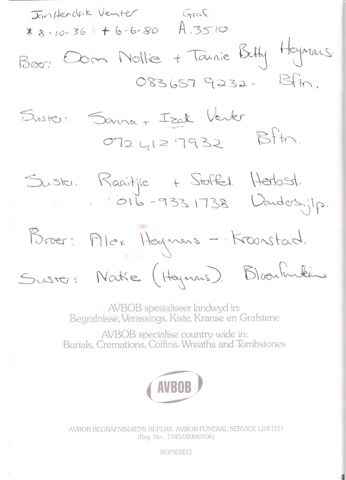 Jan Hendrik Venter Graf
* 8-10-36 + 6-6-80 A.3510
Broer: Oom Nollie + Tannie Betty Heymans
083 657 9232. Bftn.
Suster: Sanna + Izak Venter
072 412 7932 Bftn.
Suster: Raaitjie + Stoffel Herbst.
016-933 1738
Broer: Alex Heymans - Kroonstad.
Suster: Natie (Heymans). Bloemfontein
AVBOB spesialiseer landwyd in:
Begrafnisse, Verassings, Kiste, Kranse en Grafstene
AVBOB specialise country wide in:
Burials, Cremations, Coffins, Wreaths and Tombstones
AVBOB
AVBOB BEGRAFNISDIENS BEPERK AVBOB FUNERAL SERVICE LIMITED